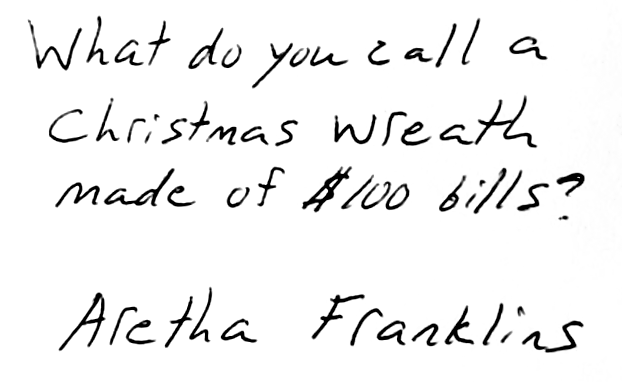 What do you call a
Christmas wreath
made of $100 bills?
Aretha Franklins